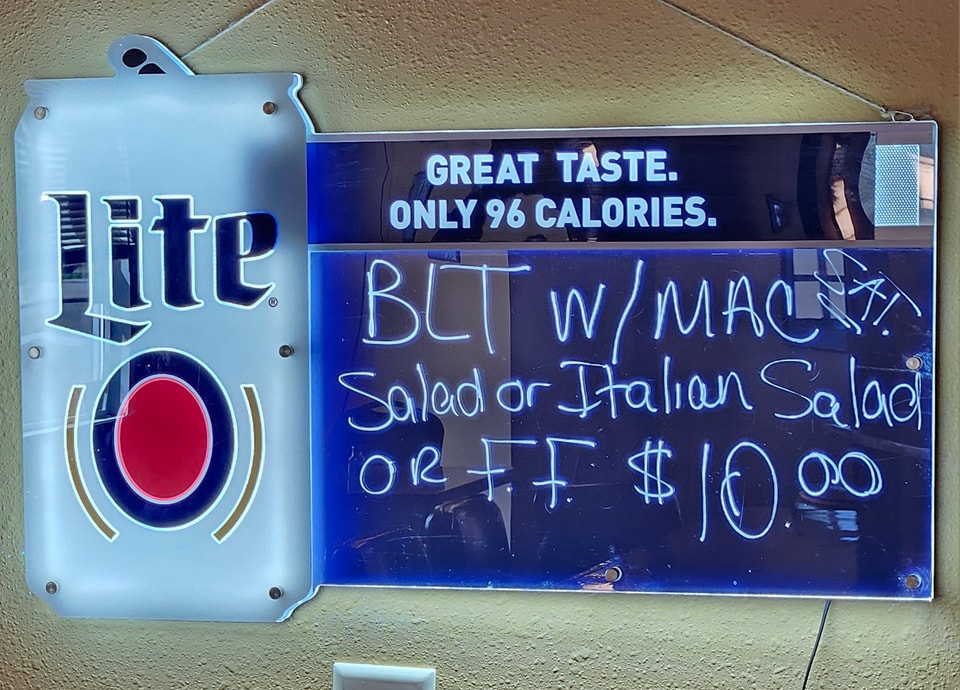 Lite®
GREAT TASTE.
ONLY 96 CALORIES.
BLT W/MAC
Salad or Italian Salad
OR F.F. $10.00